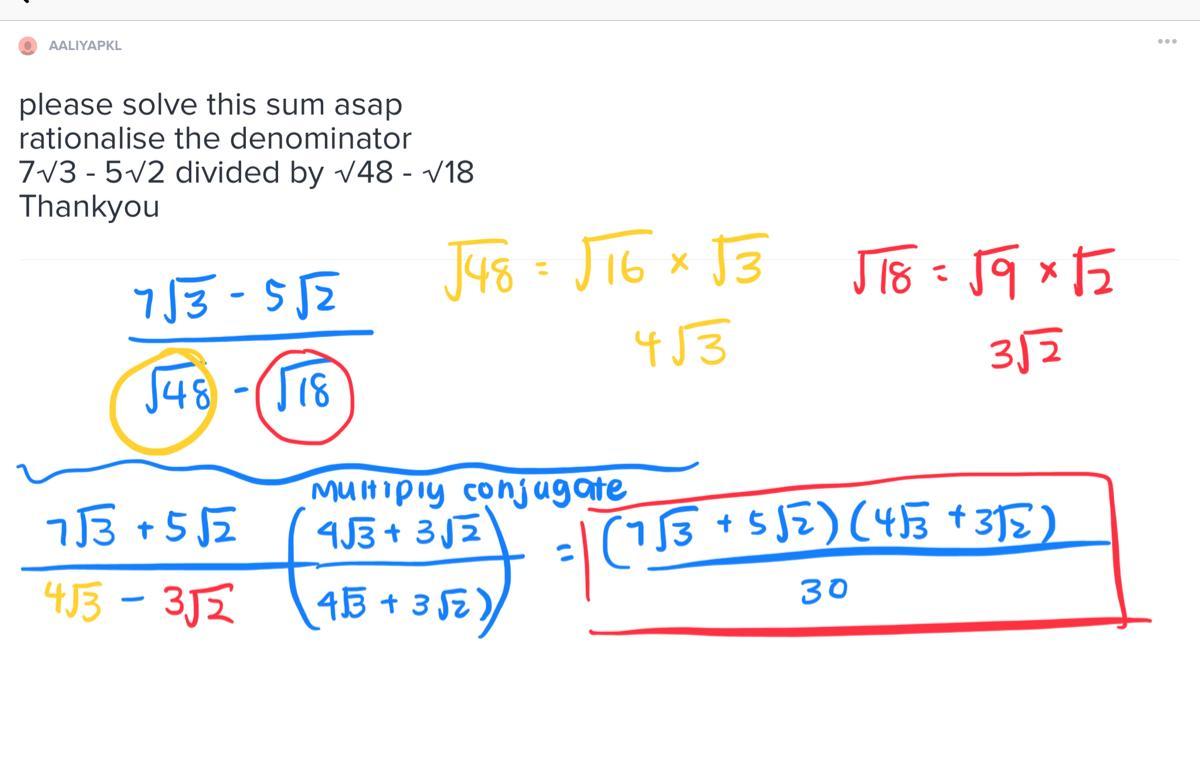 AALIYAPKL
please solve this sum asap
rationalise the denominator
7√3 - 5√2 divided by √48 - √18
Thankyou
√48 = √16 × √3
4√3
√18 = √9 × √2
3√2
7√3 - 5√2
√48 - √18
Multiply conjugate
7√3 + 5√2 (4√3 + 3√2) = (7√3 + 5√2)(4√3 + 3√2)
4√3 - 3√2 (4√3 + 3√2) 30